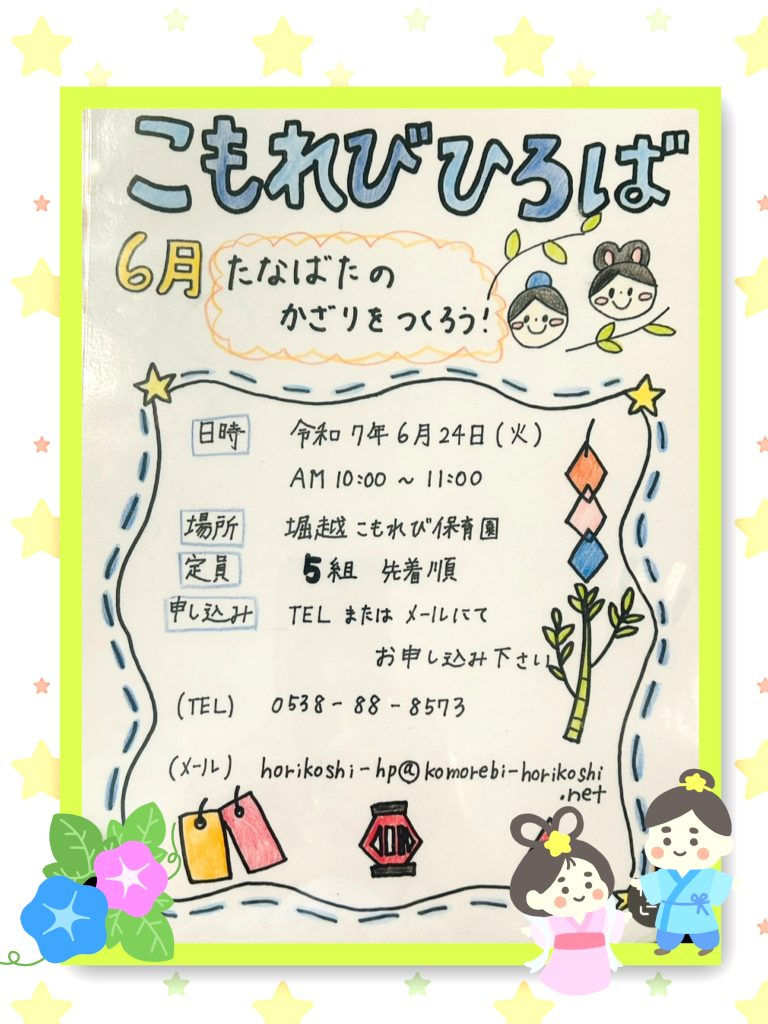 こもれびひろば
6月 たなばたの
かざりを つくろう!
日時 令和7年6月24日(火)
AM 10:00 ~ 11:00
場所 堀越こもれび保育園
定員 5組 先着順
申し込み TEL または メールにて
お申し込み下さい
(TEL) 0538-88-8573
(メール) horikoshi-hp@komorebi-horikoshi
.net